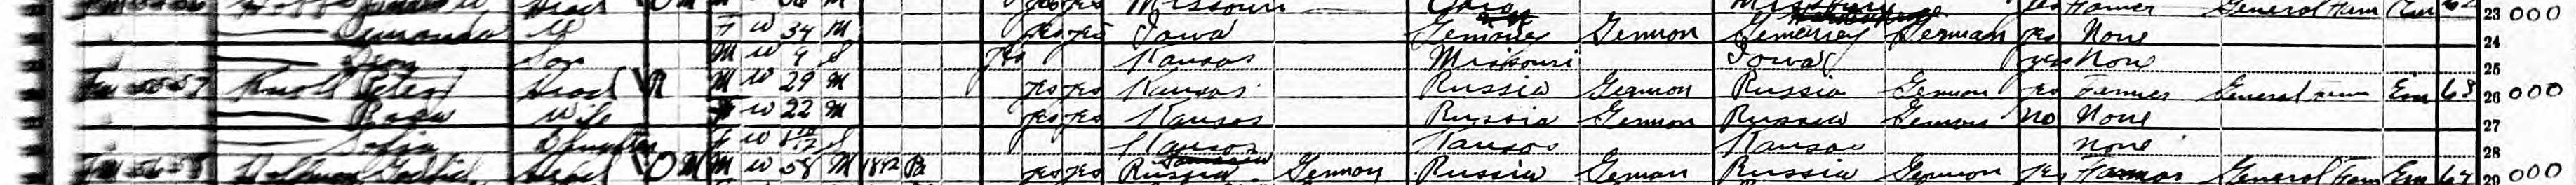 Head O M M W M yes yes Missouri Ohio Missouri yes Farmer General Farm Em 23 000
Amanda W F W 34 M yes yes Iowa Germany German Germany German yes None 24
Son M W 9 S yes Kansas Missouri Iowa yes None 25
Fm 55 57 Knoll Peter Head R M W 29 M yes yes Kansas Russia German Russia German yes Farmer General Farm Em 63 26 000
Rosa Wife F W 22 M yes yes Kansas Russia German Russia German no None 27
Sofia Daughter F W S Kansas Kansas Kansas none 28
Fm 56 58 Gottlieb Head O M M W 58 M 1892 Pa yes yes Russia German Russia German Russia German yes Farmer General Farm Em 64 29 000